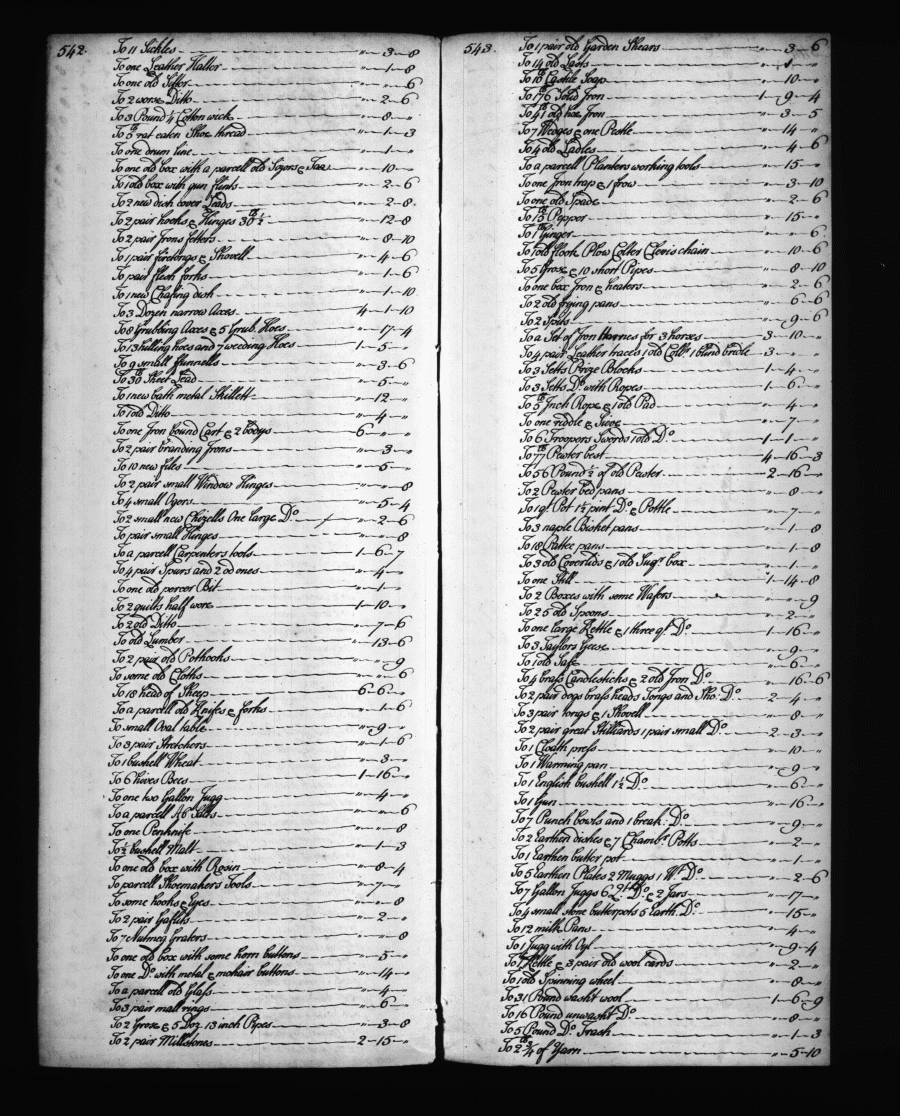 542.
To 11 Sickles " - 3 - 8
To one Leather Halter " - 1 - 8
To one old Sifter " - " - 6
To 2 worse Ditto " - 2 - 6
To 3 Pound ¼ Cotton wick " - 8 - "
To 5 lb rat eaten Shoe thread " - 1 - 3
To one drum line " - 1 - "
To one old box with a parcell old " - 10 - "
To 1 old box with gun flints " - 2 - 6
To 2 new dish cover Leads " - 2 - 8
To 2 pair hooks & Hinges 30 lb ½ " - 12 - 8
To 2 pair Irons fetters " - 8 - 10
To 1 pair firetongs & Shovell " - 4 - 6
To pair flesh forks " - 1 - 6
To 1 new Chafing dish " - 1 - 10
To 3 Dozen narrow Axes 4 - 1 - 10
To 8 Grubbing Axes & 5 Grub. Hoes " - 17 - 4
To 13 hilling hoes and 7 weeding Hoes 1 - 5 - "
To 9 small ffunnells " - 3 - 6
To 30 lb Sheet Lead " - 5 - "
To 1 new bath metal Skillett " - 12 - "
To 1 old Ditto " - 4 - "
To one Iron bound Cart & 2 bodys 6 - " - "
To 2 pair branding Irons " - 3 - "
To 10 new files " - 5 - "
To 2 pair small Window Hinges " - " - 8
To 4 small Ogors " - 5 - 4
To 2 small new Chizells One large Do. " - 2 - 6
To pair small Hinges " - " - 8
To a parcell Carpenters tools 1 - 6 - 7
To 4 pair Spurs and 2 od ones " - 4 - "
To one old porcer Bit " - 1 - "
To 2 quilts half wore 1 - 10 - "
To 2 old Ditto " - 7 - 6
To old Lumber " - 13 - 6
To 2 pair old Pothooks " - " - 9
To some old Cloths " - " - 6
To 18 head of Sheep 6 - 6 - "
To a parcell old Knifes & forks " - 1 - 6
To small Oval table " - 9 - "
To 3 pair Stretchers " - 1 - 6
To 1 bushell Wheat " - 3 - "
To 6 hives Bees 1 - 16 - "
To one two Gallon Jugg " - 4 - "
To a parcell " - " - 6
To one Penknife " - " - 8
To ½ bushell Malt " - 1 - 3
To one old box with Rosin " - 8 - 4
To parcell Shoemakers Tools " - 7 - "
To some hooks & Eyes " - " - 8
To 2 pair Gaflits " - 2 - "
To 7 Nutmeg Graters " - " - 8
To one old box with some horn buttons " - 5 - "
To one Do. with metal & mohair buttons " - 14 - "
To a parcell old Glass " - 4 - "
To 3 pair mall rings " - 6 - "
To 2 Grose & 5 Doz. 13 inch Pipes " - 3 - 8
To 2 pair Millstones 2 - 15 - "
543.
To 1 pair old Garden Shears " - 3 - 6
To 14 old Lasts " - 1 - "
To 10 lb Castile Soap " - 10 - "
To 176 lb Solid Iron 1 - 9 - 4
To 41 lb old hoe Iron " - 3 - 5
To 7 Wedges & one Pestle " - 14 - "
To 4 old Ladles " - 4 - 6
To a parcell Planters working tools " - 15 - "
To one Iron trap & 1 frow " - 3 - 10
To one old Spade " - 2 - 6
To 15 lb Pepper " - 15 - "
To 1 lb Ginger " - " - 6
To 1 old flook Plow Colter Clevis chain " - 10 - 6
To 5 Grose & 10 short Pipes " - 8 - 10
To one box Iron & heaters " - 2 - 6
To 2 old frying pans " - 6 - 6
To 2 Spits " - 9 - 6
To a Set of Iron Harness for 3 horses 3 - 10 - "
To 4 pair Leather traces 1 old Collr. 1 blind bridle 3 - " - "
To 3 Setts Prize Blocks 1 - 4 - "
To 3 Setts Do. with Ropes 1 - 6 - "
To 5 lb Inch Rope & 1 old Pad " - 4 - "
To one riddle & Sieve " - 7 - "
To 6 Troopers Swords 1 old Do. 1 - 1 - "
To 77 lb Pewter best 4 - 16 - 3
To 56 Pound ½ of old Pewter 2 - 16 - "
To 2 Pewter bed pans " - 8 - "
To 1 qt Pot 1 ½ pint Do. & Pottle " - 7 - "
To 3 naple Bisket pans " - 1 - 8
To 18 Pattee pans " - 1 - 8
To 3 old Coverlids & 1 old Sugr. box " - 1 - "
To one Still 1 - 14 - 8
To 2 Boxes with some Wafers " - " - 9
To 25 old Spoons " - 2 - "
To one large Kettle & 1 three qt. Do. 1 - 16 - "
To 3 Taylors Geese " - 9 - "
To 1 old Safe " - 6 - "
To 4 brass Candlesticks & 2 old Iron Do. " - 16 - 6
To 2 pair dogs brass heads Tongs and Sho. Do. 2 - 4 - "
To 3 pair tongs & 1 Shovell " - 8 - "
To 2 pair great Stilleards 1 pair small Do. 2 - 3 - "
To 1 Cloath press " - 10 - "
To 1 Warming pan " - 9 - "
To 1 English bushell 1 ½ Do. " - 6 - "
To 1 Gun " - 16 - "
To 7 Punch bowls and 1 break. Do. " - 9 - "
To 2 Earthen dishes & 7 Chambr. Potts " - 2 - "
To 1 Earthen butter pot " - 1 - "
To 5 Earthen Plates 2 Muggs 1 Wt. Do. " - 2 - 6
To 7 Gallon Juggs 6 2 qt. Do. & 2 Jars " - 17 - "
To 4 small stone butterpots 5 Earth. Do. " - 15 - "
To 12 milk Pans " - 4 - "
To 1 Jugg with Oyl " - 9 - 4
To 1 Kettle & 3 pair old wool cards " - 2 - "
To 1 old Spinning wheel " - 8 - "
To 31 Pound washt wool 1 - 6 - 9
To 16 Pound unwasht Do. " - 8 - "
To 5 Pound Do. Trash " - 1 - 3
To 2 lb ¾ of Yarn " - 5 - 10